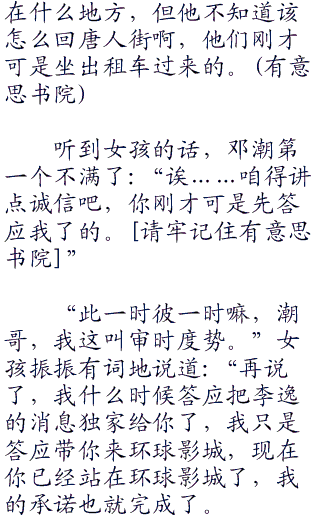 在什么地方，但他不知道该
怎么回唐人街啊，他们刚才
可是坐出租车过来的。(有意
思书院)
听到女孩的话，邓潮第
一个不满了：“诶……咱得讲
点诚信吧，你刚才可是先答
应我了的。[请牢记住有意思
书院]”
“此一时彼一时嘛，潮
哥，我这叫审时度势。”女
孩振振有词地说道：“再说
了，我什么时候答应把李逸
的消息独家给你了，我只是
答应带你来环球影城，现在
你已经站在环球影城了，我
的承诺也就完成了。